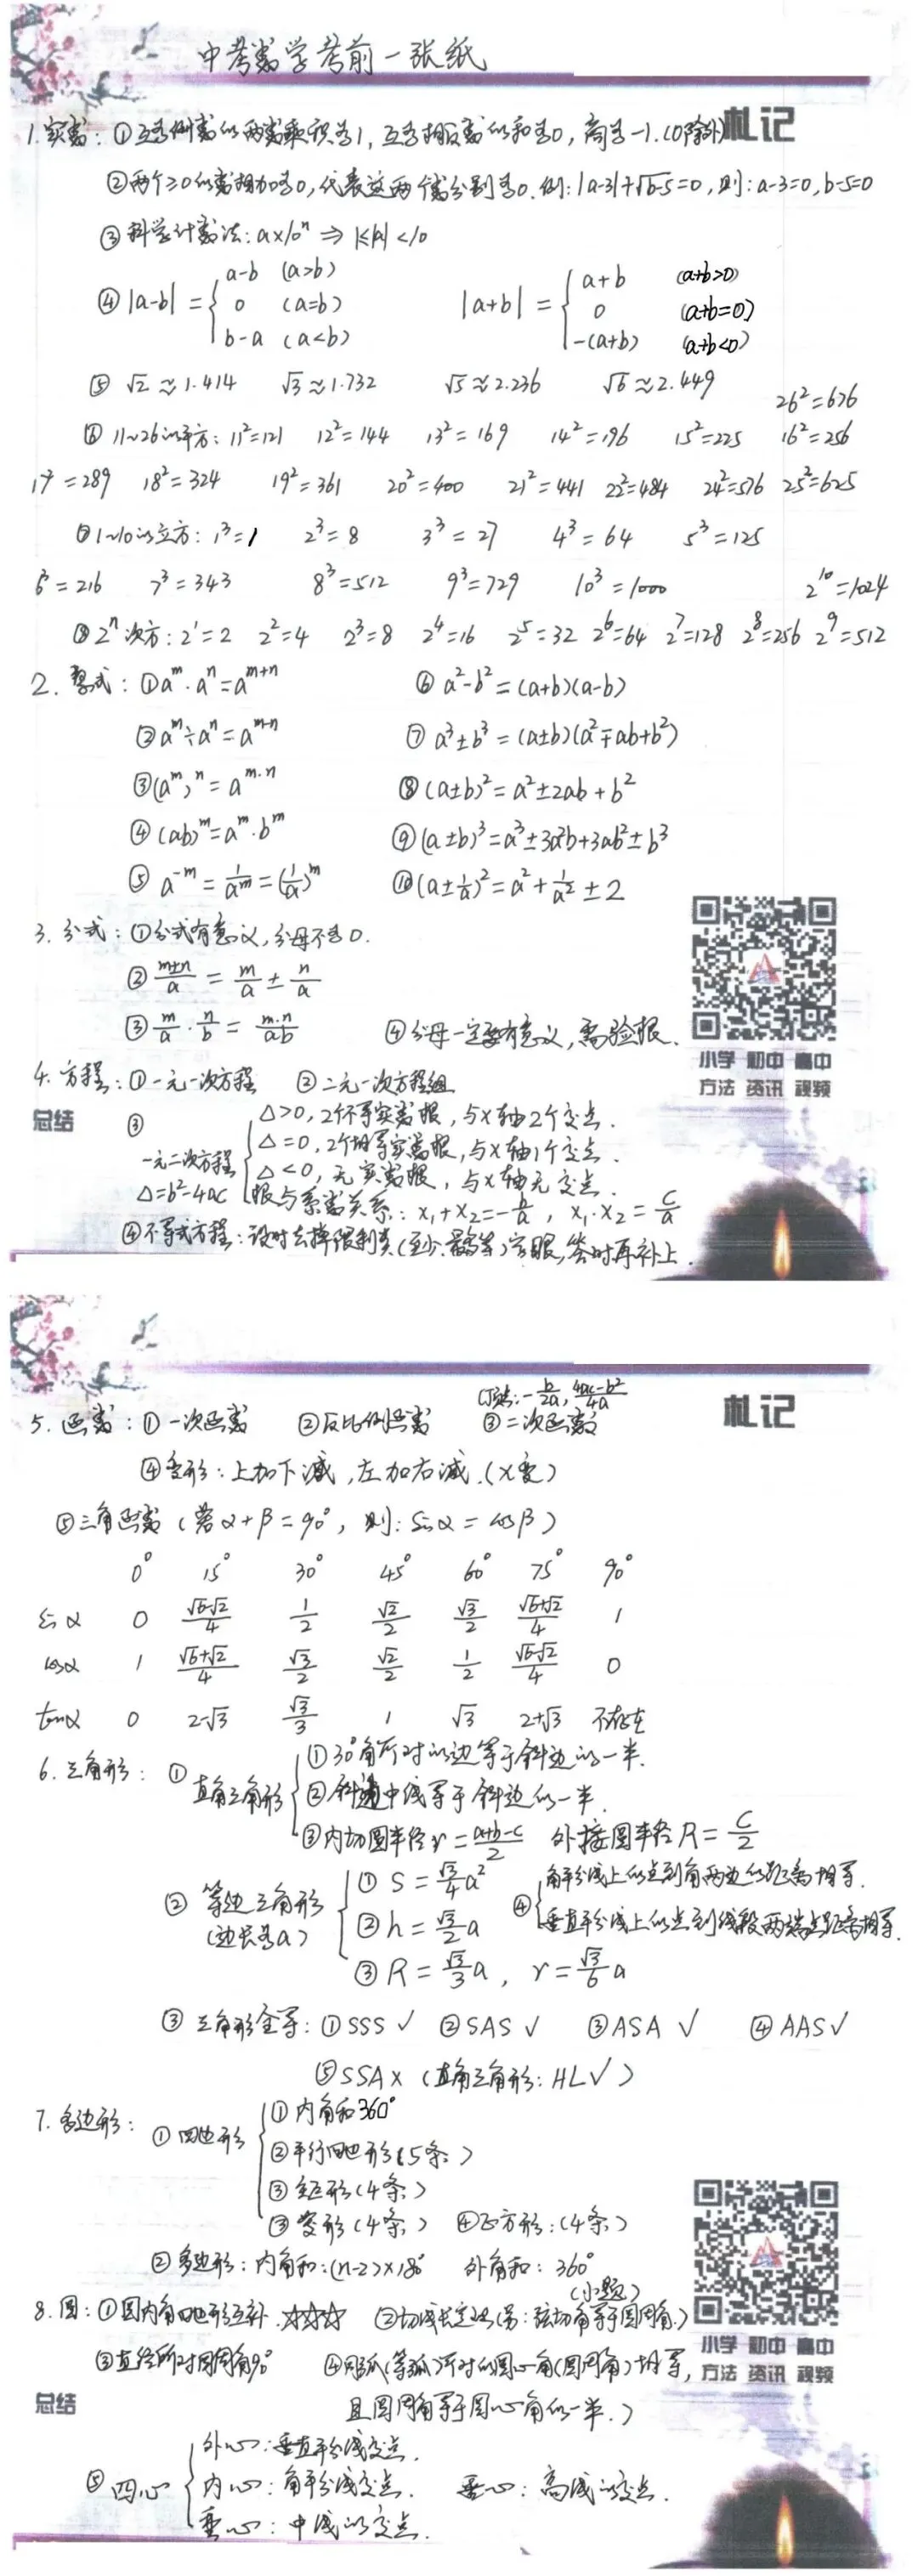 中考数学考前一张纸
札记
1.实数：①互为倒数的两数乘积为1，互为相反数的和为0，商为-1.(0除外)
②两个≥0的数相加为0，代表这两个数分别为0.例：|a-3|+√b-5=0，则：a-3=0，b-5=0
③科学计数法：a×10ⁿ ⇒ 1≤|a|<10
④ |a-b| = { a-b (a>b) 0 (a=b) b-a (a<b) |a+b| = { a+b (a+b>0) 0 (a+b=0) -(a+b) (a+b<0)
⑤ √2≈1.414 √3≈1.732 √5≈2.236 √6≈2.449
26²=676
⑥ 11~26的平方：11²=121 12²=144 13²=169 14²=196 15²=225 16²=256
17²=289 18²=324 19²=361 20²=400 21²=441 22²=484 24²=576 25²=625
⑦1~10的立方：1³=1 2³=8 3³=27 4³=64 5³=125
6³=216 7³=343 8³=512 9³=729 10³=1000 2¹⁰=1024
⑧2ⁿ次方：2¹=2 2²=4 2³=8 2⁴=16 2⁵=32 2⁶=64 2⁷=128 2⁸=256 2⁹=512
2. 整式：①aᵐ·aⁿ=aᵐ⁺ⁿ ⑥ a²-b²=(a+b)(a-b)
②aᵐ÷aⁿ=aᵐ⁻ⁿ ⑦ a³±b³=(a±b)(a²∓ab+b²)
③(aᵐ)ⁿ=a^(m·n) ⑧(a±b)²=a²±2ab+b²
④(ab)ᵐ=aᵐ·bᵐ ⑨(a±b)³=a³±3a²b+3ab²±b³
⑤ a⁻ᵐ=1/aᵐ=(1/a)ᵐ ⑩(a±1/a)²=a²+1/a²±2
3. 分式：①分式有意义，分母不为0.
② (m±n)/a = m/a ± n/a
③ m/a · n/b = m·n/ab ④分母一定要有意义，需验根.
小学 初中 高中
方法 资讯 视频
4. 方程：①一元一次方程 ②二元一次方程组
总结
③ 一元二次方程 △=b²-4ac
△>0，2个不等实数根，与x轴2个交点.
△=0，2个相等实数根，与x轴1个交点.
△<0，无实数根，与x轴无交点.
根与系数关系：x₁+x₂=-b/a，x₁·x₂=c/a
④不等式方程：设时去掉限制类(至少、最多等)字眼，答时再补上.
札记
(顶点：-b/2a，(4ac-b²)/4a
5. 函数：①一次函数 ②反比例函数 ③二次函数
④变形：上加下减，左加右减.(x变)
⑤三角函数(若α+β=90°，则：sinα=cosβ)
0° 15° 30° 45° 60° 75° 90°
sinα 0 (√6-√2)/4 1/2 √2/2 √3/2 (√6+√2)/4 1
cosα 1 (√6+√2)/4 √3/2 √2/2 1/2 (√6-√2)/4 0
tanα 0 2-√3 √3/3 1 √3 2+√3 不存在
6. 三角形：① 直角三角形
①30°角所对的边等于斜边的一半.
②斜边中线等于斜边的一半.
③内切圆半径r=(a+b-c)/2 外接圆半径R=c/2
② 等边三角形 (边长为a)
① S=√3/4 a²
② h=√3/2 a
③ R=√3/3 a，r=√3/6 a
④ 角平分线上的点到角两边的距离相等.
垂直平分线上的点到线段两端点距离相等.
③ 三角形全等：①SSS✓ ②SAS✓ ③ASA✓ ④AAS✓
⑤SSA× (直角三角形：HL✓)
7. 多边形：① 四边形
①内角和360°
②平行四边形(5条)
③矩形(4条)
③菱形(4条) ④正方形：(4条)
②多边形：内角和：(n-2)×180° 外角和：360°
(小题)
8. 圆：①圆内角四边形互补.☆☆☆ ②切线长定理(另：弦切角等于圆周角)
③直径所对圆周角90° ④同弧(等弧)所对的圆心角(圆周角)相等，
且圆周角等于圆心角的一半.)
小学 初中 高中
方法 资讯 视频
总结
⑤四心
外心：垂直平分线交点.
内心：角平分线交点. 垂心：高线的交点.
重心：中线的交点.